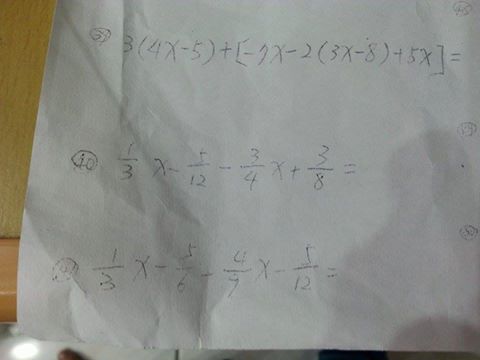 3(4x-5)+[-7x-2(3x-8)+5x]=
⑩ 1/3 x - 5/12 - 3/4 x + 3/8 =
1/3 x - 5/6 - 4/9 x - 5/12 =